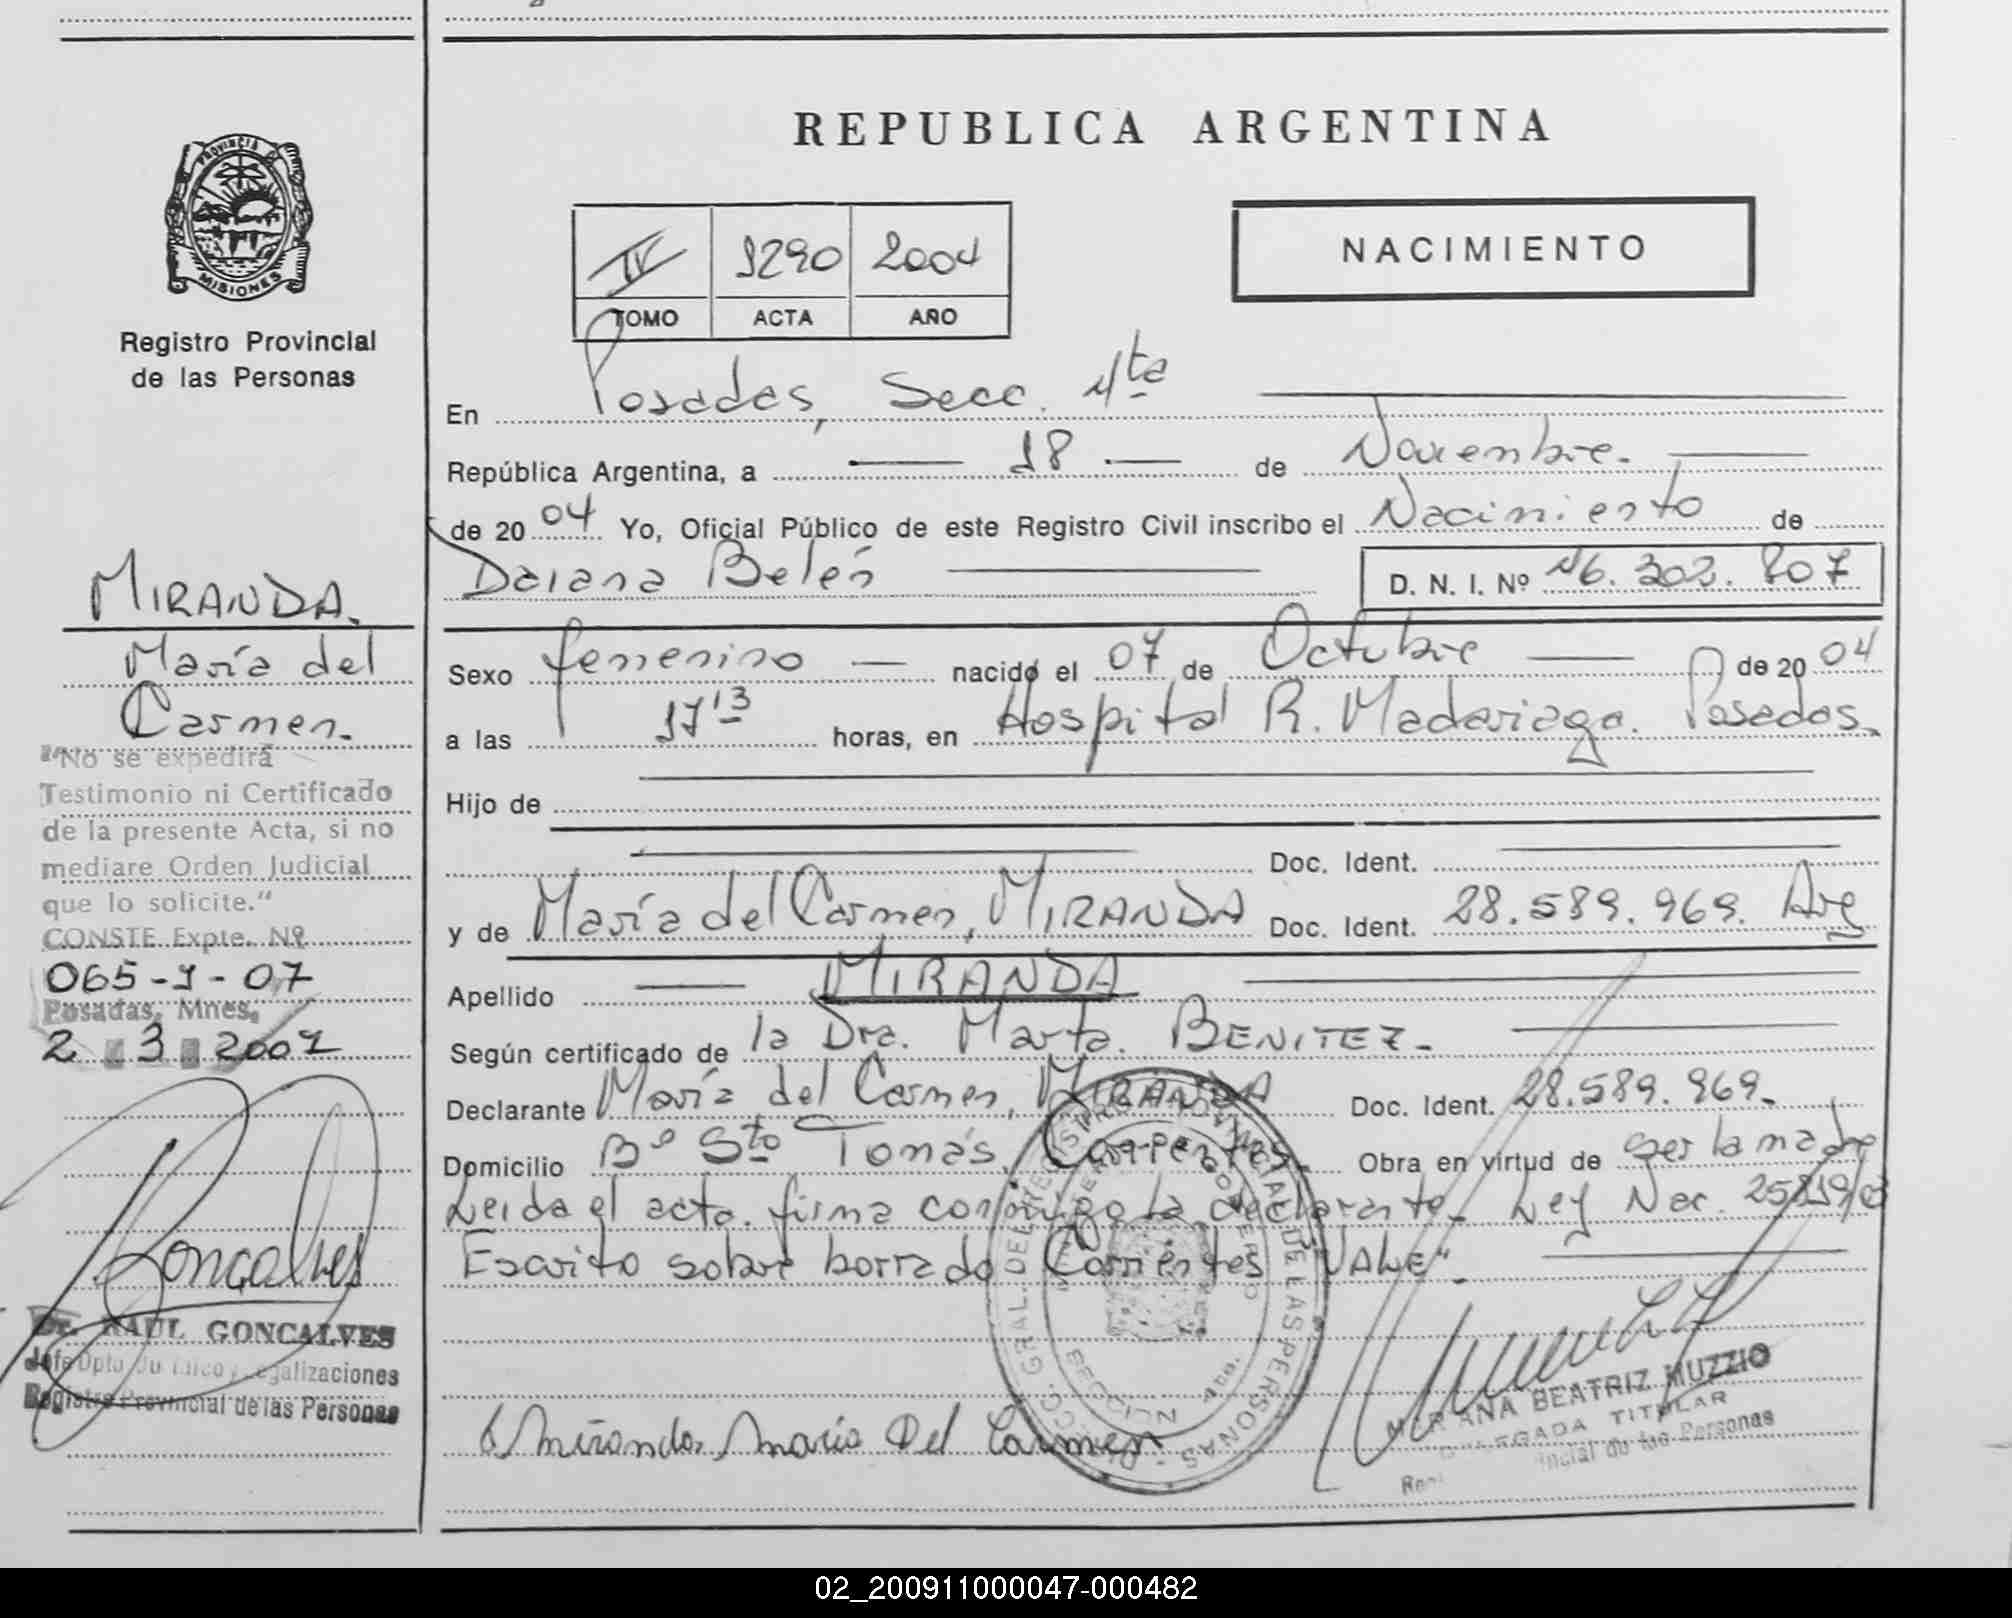 REPUBLICA ARGENTINA
PROVINCIA DE
MISIONES
Registro Provincial
de las Personas
IV 1290 2004
TOMO ACTA AÑO
NACIMIENTO
En Posadas, Secc. 4ta
República Argentina, a 18 de Noviembre.
de 20 04 Yo, Oficial Público de este Registro Civil inscribo el Nacimiento de
Daiana Belén D. N. I. Nº 46.302.807
Sexo femenino nacido el 07 de Octubre de 20 04
a las 17 13 horas, en Hospital R. Madariaga. Posadas.
Hijo de
Doc. Ident.
y de María del Carmen, MIRANDA Doc. Ident. 28.589.969. Arg
Apellido MIRANDA
Según certificado de la Dra. Marta. BENITEZ.
Declarante María del Carmen, MIRANDA Doc. Ident. 28.589.969.
Domicilio Bº Sto Tomás, Corrientes. Obra en virtud de ser la madre
Leida el acta. firma conmigo la declarante. Ley Nac. 25819/03
Escrito sobre borrado Corrientes "VALE".
Miranda, María Del Carmen
MARIANA BEATRIZ MUZZIO
DELEGADA TITULAR
de las Personas
MIRANDA.
María del
Carmen.
"No se expedirá
Testimonio ni Certificado
de la presente Acta, si no
mediare Orden Judicial
que lo solicite."
CONSTE Expte. Nº
065-1-07
Posadas, Mnes.
2 3 2007
Goncalves
Dr. RAUL GONCALVES
Jefe Dpto. Jurídico y Legalizaciones
Registro Provincial de las Personas
02_200911000047-000482